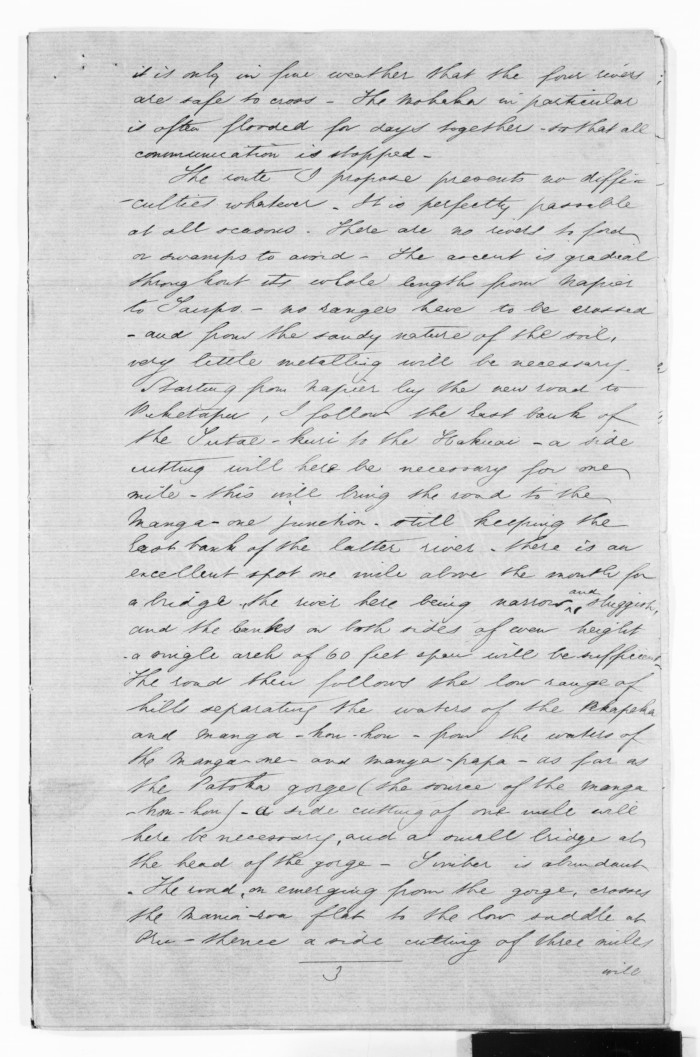 it is only in fine weather that the four rivers
are safe to cross - The Mohaka in particular
is often flooded for days together - so that all
communication is stopped -
The route I propose presents no diffi=
-culties whatever - It is perfectly passable
at all seasons. There are no rivers to ford
or swamps to avoid - The ascent is gradual
throughout its whole length from Napier
to Taupo - no ranges have to be crossed
- and from the sandy nature of the soil,
very little metalling will be necessary -
Starting from Napier by the new road to
Puketapu, I follow the East bank of
the Tutae-kuri to the Hakuai - a side
cutting will here be necessary for one
mile - this will bring the road to the
Manga-one junction - still keeping the
East bank of the latter river - there is an
excellent spot one mile above the mouth for
a bridge, the river here being narrow and sluggish,
and the banks on both sides of even height
- a single arch of 60 feet span will be sufficient -
The road then follows the low range of
hills separating the waters of the
and manga-hou-hou - from the waters of
the Manga-ne - and manga-papa - as far as
the Patoka gorge (the source of the manga
-hou-hou) - a side cutting of one mile will
here be necessary, and a small bridge at
the head of the gorge - Timber is abundant
- The road, on emerging from the gorge, crosses
the Mania-roa flat to the low saddle at
- thence a side cutting of three miles
3
will